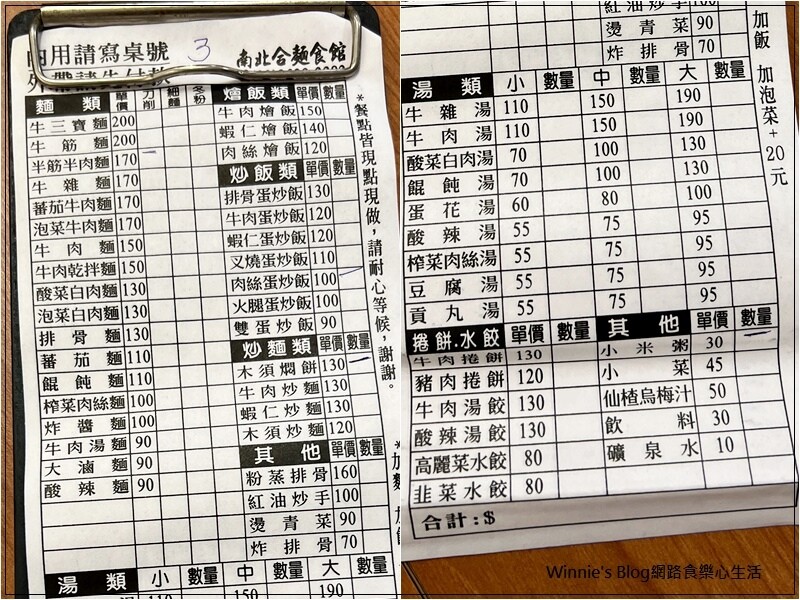 內用請寫桌號 3 南北合麵食館
外帶請先付款
麵類 單價 刀削 細麵 冬粉
牛三寶麵 200
牛筋麵 200
半筋半肉麵 170
牛雜麵 170
蕃茄牛肉麵 170
泡菜牛肉麵 170
牛肉麵 150
牛肉乾拌麵 150
酸菜白肉麵 130
泡菜白肉麵 130
排骨麵 130
蕃茄麵 110
餛飩麵 110
榨菜肉絲麵 100
炸醬麵 100
牛肉湯麵 90
大滷麵 90
酸辣麵 90
燴飯類 單價 數量
牛肉燴飯 150
蝦仁燴飯 140
肉絲燴飯 120
炒飯類 單價 數量
排骨蛋炒飯 130
牛肉蛋炒飯 120
蝦仁蛋炒飯 120
叉燒蛋炒飯 110
肉絲蛋炒飯 100
火腿蛋炒飯 100
雙蛋炒飯 90
炒麵類 單價 數量
木須燜餅 130
牛肉炒麵 130
蝦仁炒麵 130
木須炒麵 120
其他 單價 數量
粉蒸排骨 160
紅油炒手 100
燙青菜 90
炸排骨 70
*餐點皆現點現做，請耐心等候，謝謝。
湯類 小 數量 中 數量 大
110 150 190
紅油炒手 100
燙青菜 90
炸排骨 70
加飯 加泡菜+20元
湯類 小 數量 中 數量 大 數量
牛雜湯 110 150 190
牛肉湯 110 150 190
酸菜白肉湯 70 100 130
餛飩湯 70 100 130
蛋花湯 60 80 100
酸辣湯 55 75 95
榨菜肉絲湯 55 75 95
豆腐湯 55 75 95
貢丸湯 55 75 95
捲餅.水餃 單價 數量
牛肉捲餅 130
豬肉捲餅 120
牛肉湯餃 130
酸辣湯餃 130
高麗菜水餃 80
韭菜水餃 80
其他 單價 數量
小米粥 30
小菜 45
仙楂烏梅汁 50
飲料 30
礦泉水 10
合計:$
Winnie's Blog網路食樂心生活